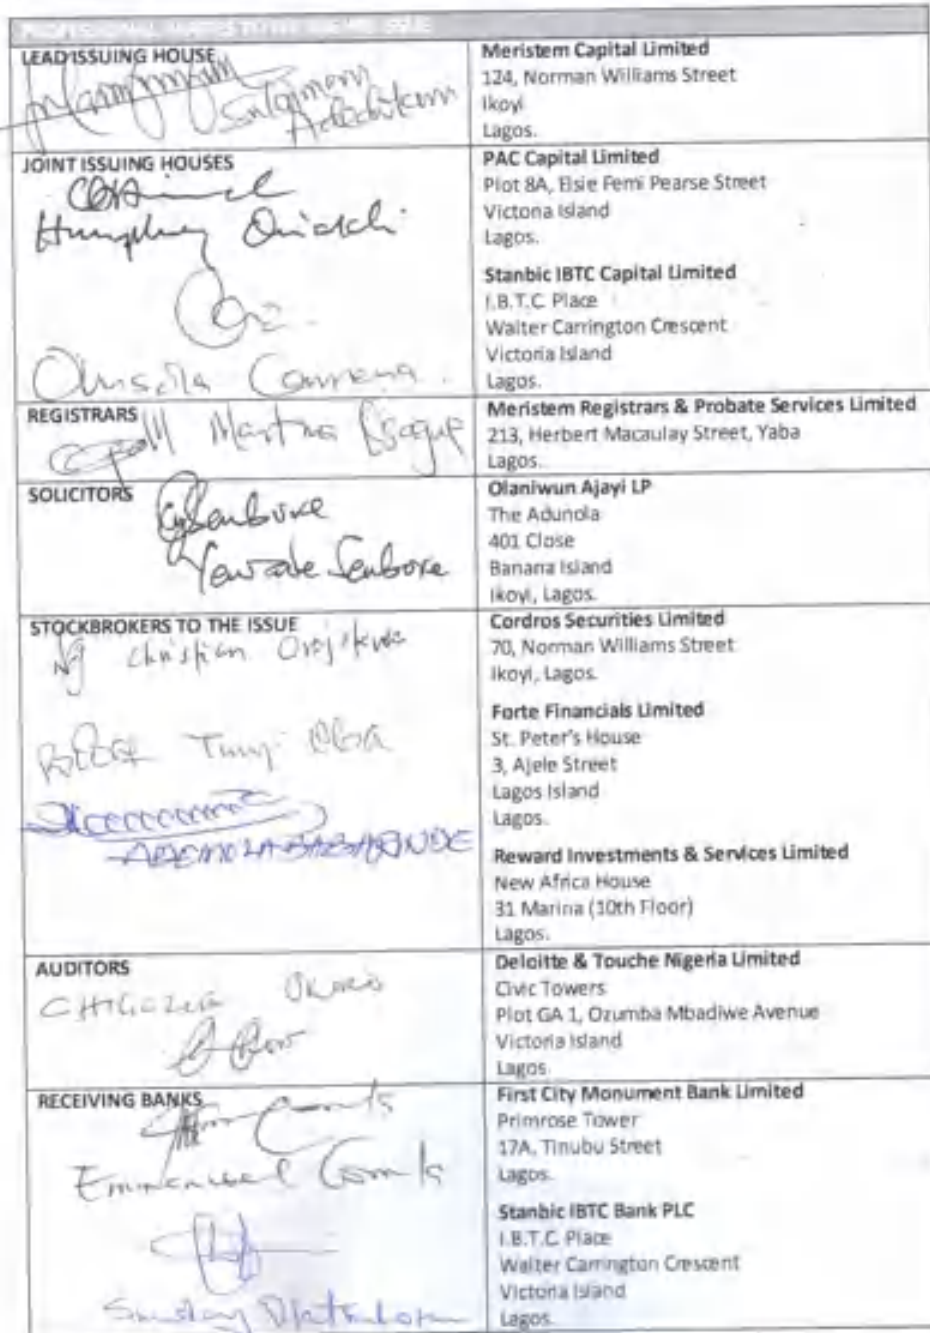 LEAD ISSUING HOUSE
Meristem Capital Limited
124, Norman Williams Street
Ikoyi
Lagos.
JOINT ISSUING HOUSES
Humphrey
PAC Capital Limited
Plot 8A, Elsie Femi Pearse Street
Victoria Island
Lagos.
Stanbic IBTC Capital Limited
I.B.T.C. Place
Walter Carrington Crescent
Victoria Island
Lagos.
REGISTRARS
Meristem Registrars & Probate Services Limited
213, Herbert Macaulay Street, Yaba
Lagos.
SOLICITORS
Yewande Senbore
Olaniwun Ajayi LP
The Adunola
401 Close
Banana Island
Ikoyi, Lagos.
STOCKBROKERS TO THE ISSUE
Christian
ADEMOLA BABARINDE
Cordros Securities Limited
70, Norman Williams Street
Ikoyi, Lagos.
Forte Financials Limited
St. Peter's House
3, Ajele Street
Lagos Island
Lagos.
Reward Investments & Services Limited
New Africa House
31 Marina (10th Floor)
Lagos.
AUDITORS
Deloitte & Touche Nigeria Limited
Civic Towers
Plot GA 1, Ozumba Mbadiwe Avenue
Victoria Island
Lagos
RECEIVING BANKS
Emmanuel
Sunday
First City Monument Bank Limited
Primrose Tower
17A, Tinubu Street
Lagos.
Stanbic IBTC Bank PLC
I.B.T.C. Place
Walter Carrington Crescent
Victoria Island
Lagos.